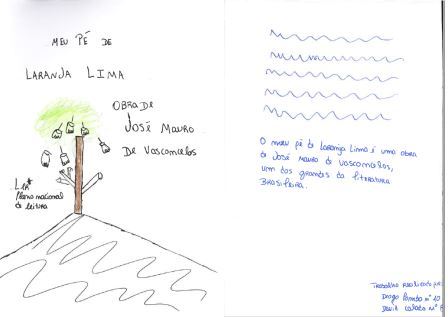 MEU PÉ DE
LARANJA LIMA
OBRA DE
JOSÉ MAURO
DE VASCONCELOS
LER+
Plano nacional
de leitura
O meu pé de Laranja Lima é uma obra
de José Mauro de Vasconcelos,
um dos grandes da literatura
Brasileira.
Trabalho realizado por:
Diogo nº 10
David nº